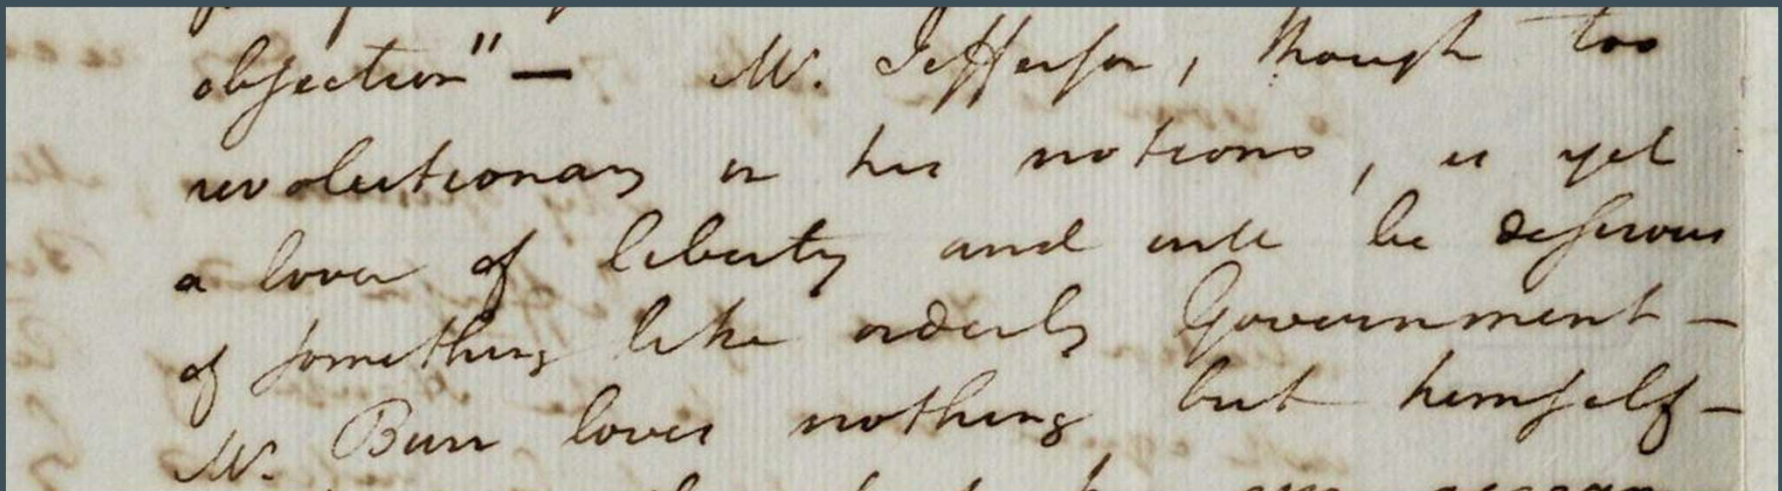 objection" — Mr. Jefferson, though too
revolutionary in his notions, is yet
a lover of liberty and will be desirous
of something like orderly Government —
Mr. Burr loves nothing but himself —